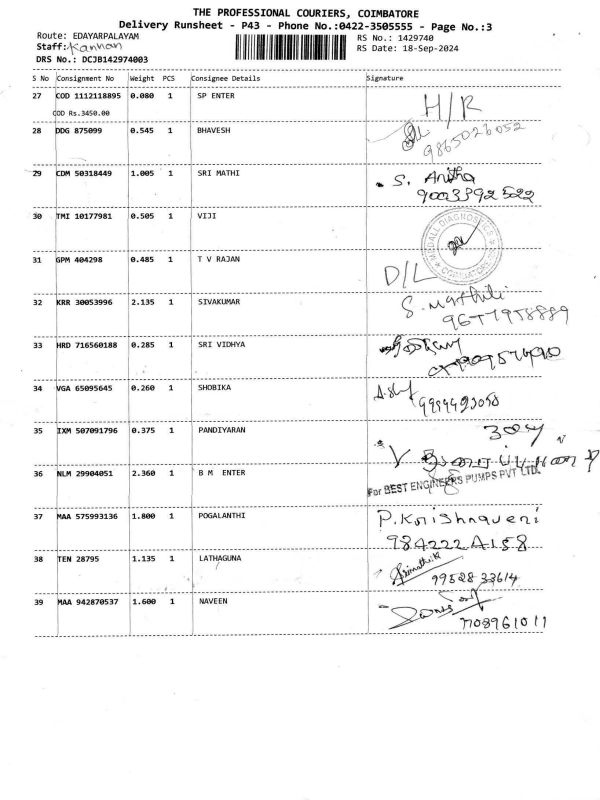 THE PROFESSIONAL COURIERS, COIMBATORE
Delivery Runsheet - P43 - Phone No.:0422-3505555 - Page No.:3
Route: EDAYARPALAYAM
RS No.: 1429740
Staff: Kannan
RS Date: 18-Sep-2024
DRS No.: DCJB142974003
S No Consignment No Weight PCS Consignee Details Signature
27 COD 1112118895 0.080 1 SP ENTER H/R
COD Rs.3450.00
28 DDG 875099 0.545 1 BHAVESH
9865026052
29 CDM 50318449 1.005 1 SRI MATHI S. Anitha
9003392522
30 TMI 10177981 0.505 1 VIJI
MEDALL DIAGNOSTICS COIMBATORE
31 GPM 404298 0.485 1 T V RAJAN D/L
32 KRR 30053996 2.135 1 SIVAKUMAR S. Mathili
9677958889
33 HRD 716560188 0.285 1 SRI VIDHYA
34 VGA 65095645 0.260 1 SHOBIKA
35 IXM 507091796 0.375 1 PANDIYARAN
36 NLM 29904051 2.360 1 B M ENTER
For BEST ENGINEERS PUMPS PVT LTD.
37 MAA 575993136 1.800 1 POGALANTHI P.Krishnaveni
984222A158
38 TEN 28795 1.135 1 LATHAGUNA
99528 33614
39 MAA 942870537 1.600 1 NAVEEN
7708961011